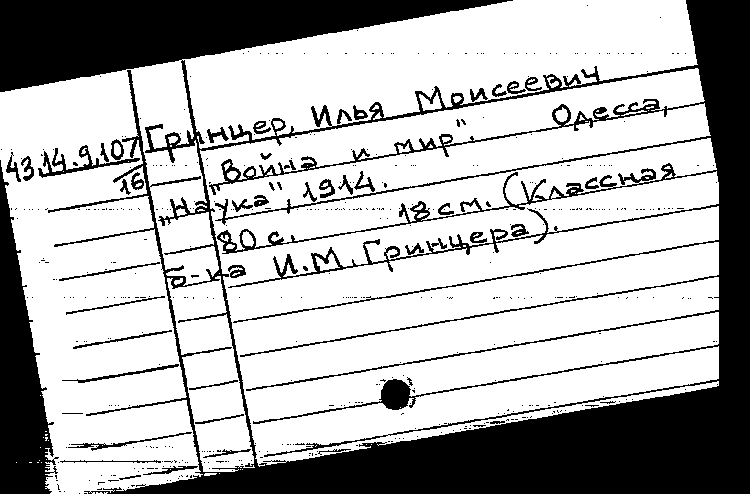 43.14.9.107
16
Гринцер, Илья Моисеевич
"Война и мир". Одесса,
„Наука", 1914.
80 с. 18 см. (Классная
б-ка И.М.Гринцера).